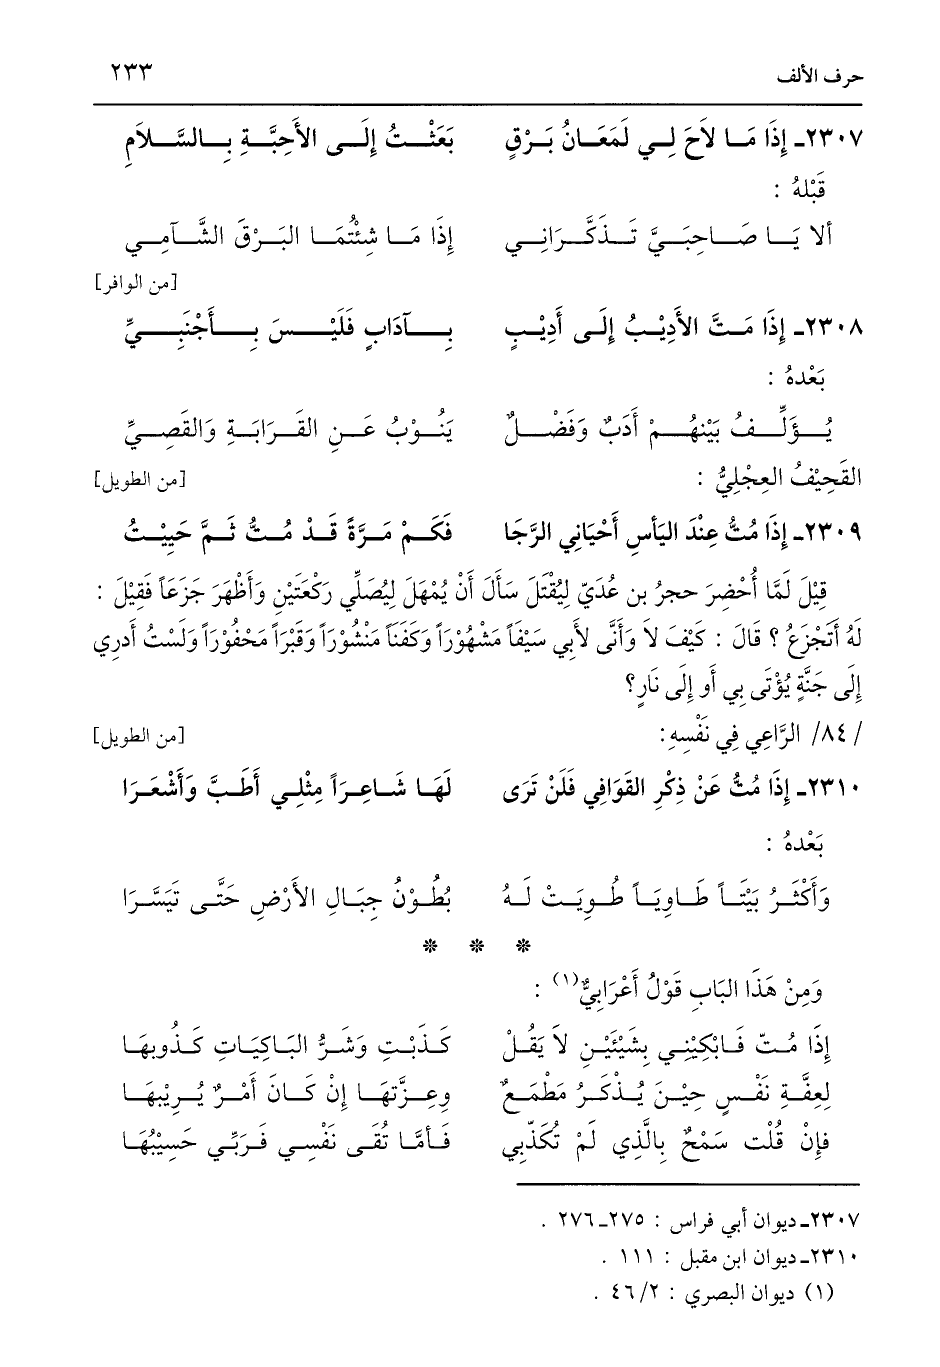 حرف الألف ٢٣٣
٢٣٠٧ـ إِذَا مَا لاَحَ لِي لَمَعَانُ بَرْقٍ بَعَثْتُ إِلَى الأَحِبَّةِ بِالسَّلاَمِ
قَبْلهُ :
ألا يَا صَاحِبَيَّ تَذَكَّرَانِي إِذَا مَا شِئْتُمَا البَرْقَ الشَّآمِي
[من الوافر]
٢٣٠٨ـ إِذَا مَتَّ الأَدِيْبُ إِلَى أَدِيْبٍ بِآدَابٍ فَلَيْسَ بِأَجْنَبِيِّ
بَعْدهُ :
يُؤَلِّفُ بَيْنهُمْ أَدَبٌ وَفَضْلٌ يَنُوْبُ عَنِ القَرَابَةِ وَالقَصِيِّ
القَحِيْفُ العِجْلِيُّ : [من الطويل]
٢٣٠٩ـ إِذَا مُتُّ عِنْدَ اليَأسِ أَحْيَانِي الرَّجَا فَكَمْ مَرَّةً قَدْ مُتُّ ثَمَّ حَيِيْتُ
قِيْلَ لَمَّا أُحْضِرَ حجرُ بن عُدَيّ لِيُقْتَلَ سَألَ أَنْ يُمْهَلَ لِيُصَلِّي رَكْعَتَيْنِ وَأَظْهَرَ جَزَعَاً فَقِيْلَ :
لَهُ أَتَجْزَعُ ؟ قَالَ : كَيْفَ لاَ وَأنَّى لأبي سَيْفَاً مَشْهُوْرَاً وَكَفَنَاً مَنْشُوْرَاً وَقَبْرَاً مَحْفُوْرَاً وَلَسْتُ أدري
إِلَى جَنَّةٍ يُؤْتَى بِي أَو إِلَى نَارٍ؟
/ ٨٤/ الرَّاعِي فِي نَفْسِهِ: [من الطويل]
٢٣١٠ـ إِذَا مُتُّ عَنْ ذِكْرِ القَوَافِي فَلَنْ تَرَى لَهَا شَاعِرَاً مِثْلِي أَطَبَّ وَأَشْعَرَا
بَعْدهُ :
وَأَكْثَرُ بَيْتَاً طَاوِيَاً طُوِيَتْ لَهُ بُطُوْنُ جِبَالِ الأَرْضِ حَتَّى تَيَسَّرَا
* * *
وَمِنْ هَذَا البَابِ قَوْلُ أَعْرَابِيٌّ(١) :
إِذَا مُتّ فَابْكِيْنِي بِشَيْئَيْنِ لاَ يَقُلْ كَذَبْتِ وَشَرُّ البَاكِيَاتِ كَذُوبهَا
لِعِفَّةِ نَفْسٍ حِيْنَ يُذْكَرُ مَطْمَعٌ وعِزَّتهَا إِنْ كَانَ أَمْرٌ يُرِيْبهَا
فإِنْ قُلْت سَمْحٌ بِالَّذِي لَمْ تُكَذّبِي فَأمَّا تُقَى نَفْسِي فَرَبِّي حَسِيْبُهَا
٢٣٠٧ـ ديوان أبي فراس : ٢٧٥ـ ٢٧٦ .
٢٣١٠ـ ديوان ابن مقبل : ١١١ .
(١) ديوان البصري : ٤٦/٢ .